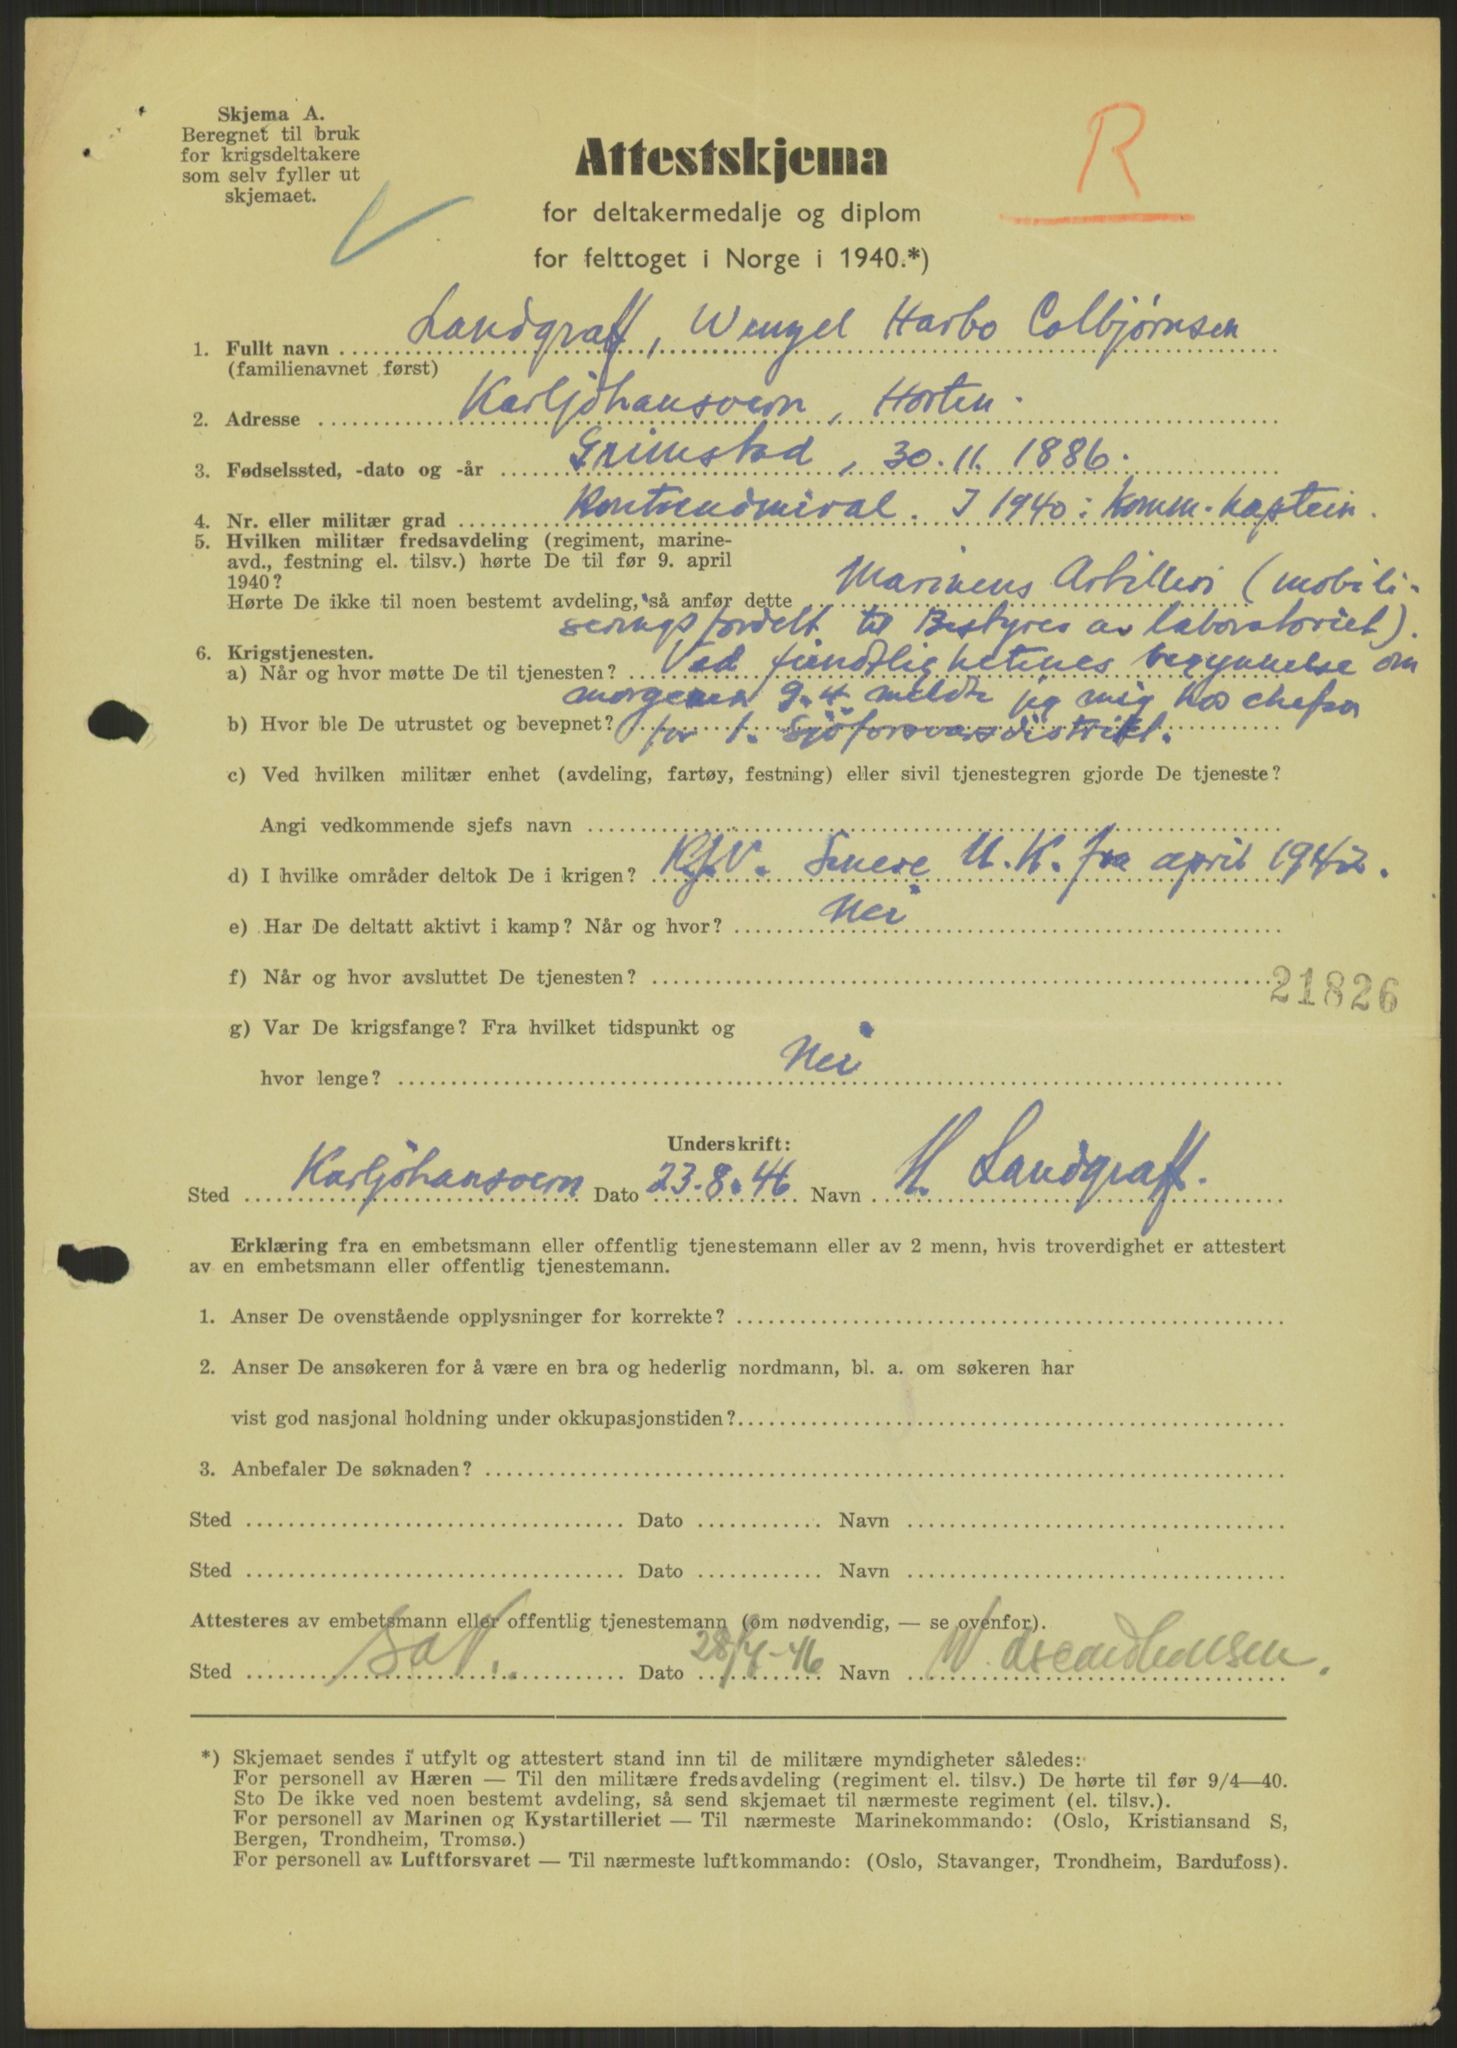 Skjema A.
Beregnet til bruk
for krigsdeltakere
som selv fyller ut
skjemaet.
Attestskjema
for deltakermedalje og diplom
for felttoget i Norge i 1940.*)
R
1. Fullt navn Landgraff, Wenzel Harbo Colbjørnsen
(familienavnet først)
2. Adresse Karljohansvern, Horten.
3. Fødselssted, -dato og -år Grimstad, 30.11.1886.
4. Nr. eller militær grad Kontreadmiral. I 1940: Komm. kaptein.
5. Hvilken militær fredsavdeling (regiment, marine-
avd., festning el. tilsv.) hørte De til før 9. april
1940?
Hørte De ikke til noen bestemt avdeling, så anfør dette Marinens Artilleri (mobili-
seringsfordelt til Bestyrer av laboratoriet).
6. Krigstjenesten.
a) Når og hvor møtte De til tjenesten? Ved fiendtlighetenes begynnelse om
morgenen 9.4. meldte jeg mig hos chefen
b) Hvor ble De utrustet og bevepnet? for 1. Sjøforsvarsdistrikt.
c) Ved hvilken militær enhet (avdeling, fartøy, festning) eller sivil tjenestegren gjorde De tjeneste?
Angi vedkommende sjefs navn
d) I hvilke områder deltok De i krigen? KJV. Senere U.K. fra april 1942.
e) Har De deltatt aktivt i kamp? Når og hvor? Nei
f) Når og hvor avsluttet De tjenesten?
21826
g) Var De krigsfange? Fra hvilket tidspunkt og
hvor lenge? Nei
Underskrift:
Sted Karljohansvern Dato 23.8.46 Navn H. Landgraff.
Erklæring fra en embetsmann eller offentlig tjenestemann eller av 2 menn, hvis troverdighet er attestert
av en embetsmann eller offentlig tjenestemann.
1. Anser De ovenstående opplysninger for korrekte?
2. Anser De ansøkeren for å være en bra og hederlig nordmann, bl. a. om søkeren har
vist god nasjonal holdning under okkupasjonstiden?
3. Anbefaler De søknaden?
Sted Dato Navn
Sted Dato Navn
Attesteres av embetsmann eller offentlig tjenestemann (om nødvendig, — se ovenfor).
Sted Dato Navn
*) Skjemaet sendes i utfylt og attestert stand inn til de militære myndigheter således:
For personell av Hæren — Til den militære fredsavdeling (regiment el. tilsv.) De hørte til før 9/4—40.
Sto De ikke ved noen bestemt avdeling, så send skjemaet til nærmeste regiment (el. tilsv.).
For personell av Marinen og Kystartilleriet — Til nærmeste Marinekommando: (Oslo, Kristiansand S,
Bergen, Trondheim, Tromsø.)
For personell av Luftforsvaret — Til nærmeste luftkommando: (Oslo, Stavanger, Trondheim, Bardufoss).